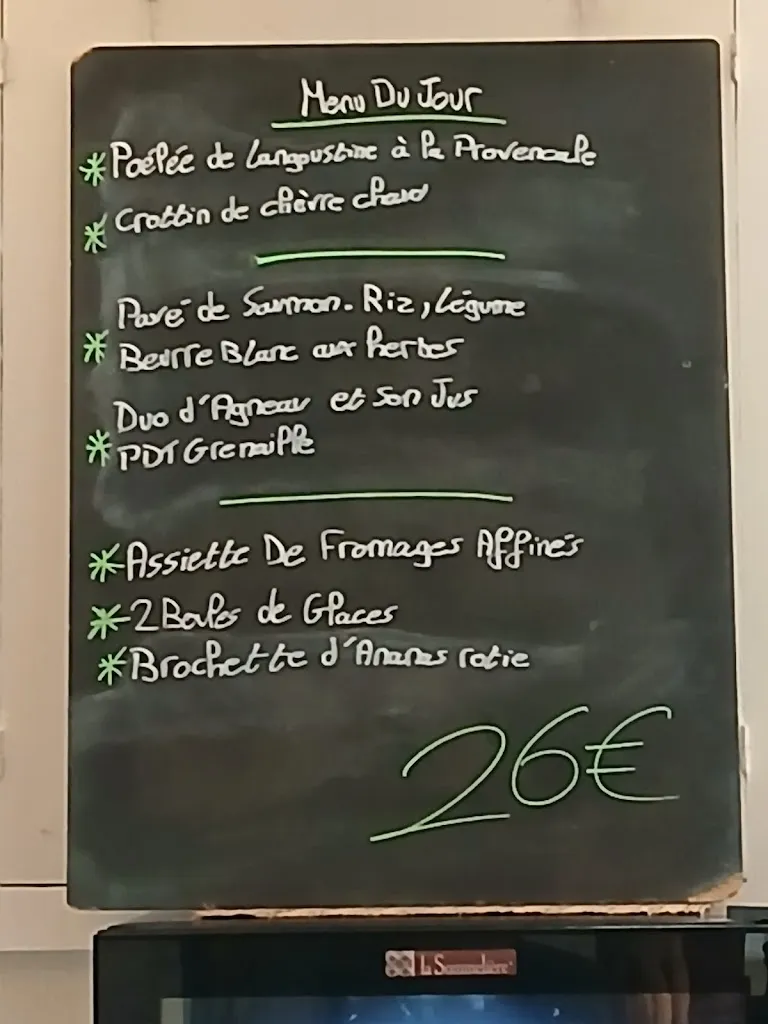 Menu Du Jour
* Poélée de Langoustine à la Provencale
* Crottin de chèvre chaud
Pavé de Saumon. Riz, Légume
* Beurre Blanc aux herbes
Duo d'Agneau et Son Jus
* PDT Grenaille
* Assiette De Fromages Affinés
* 2 Boules de Glaces
* Brochette d'Ananas rotie
26€
La Sommelière